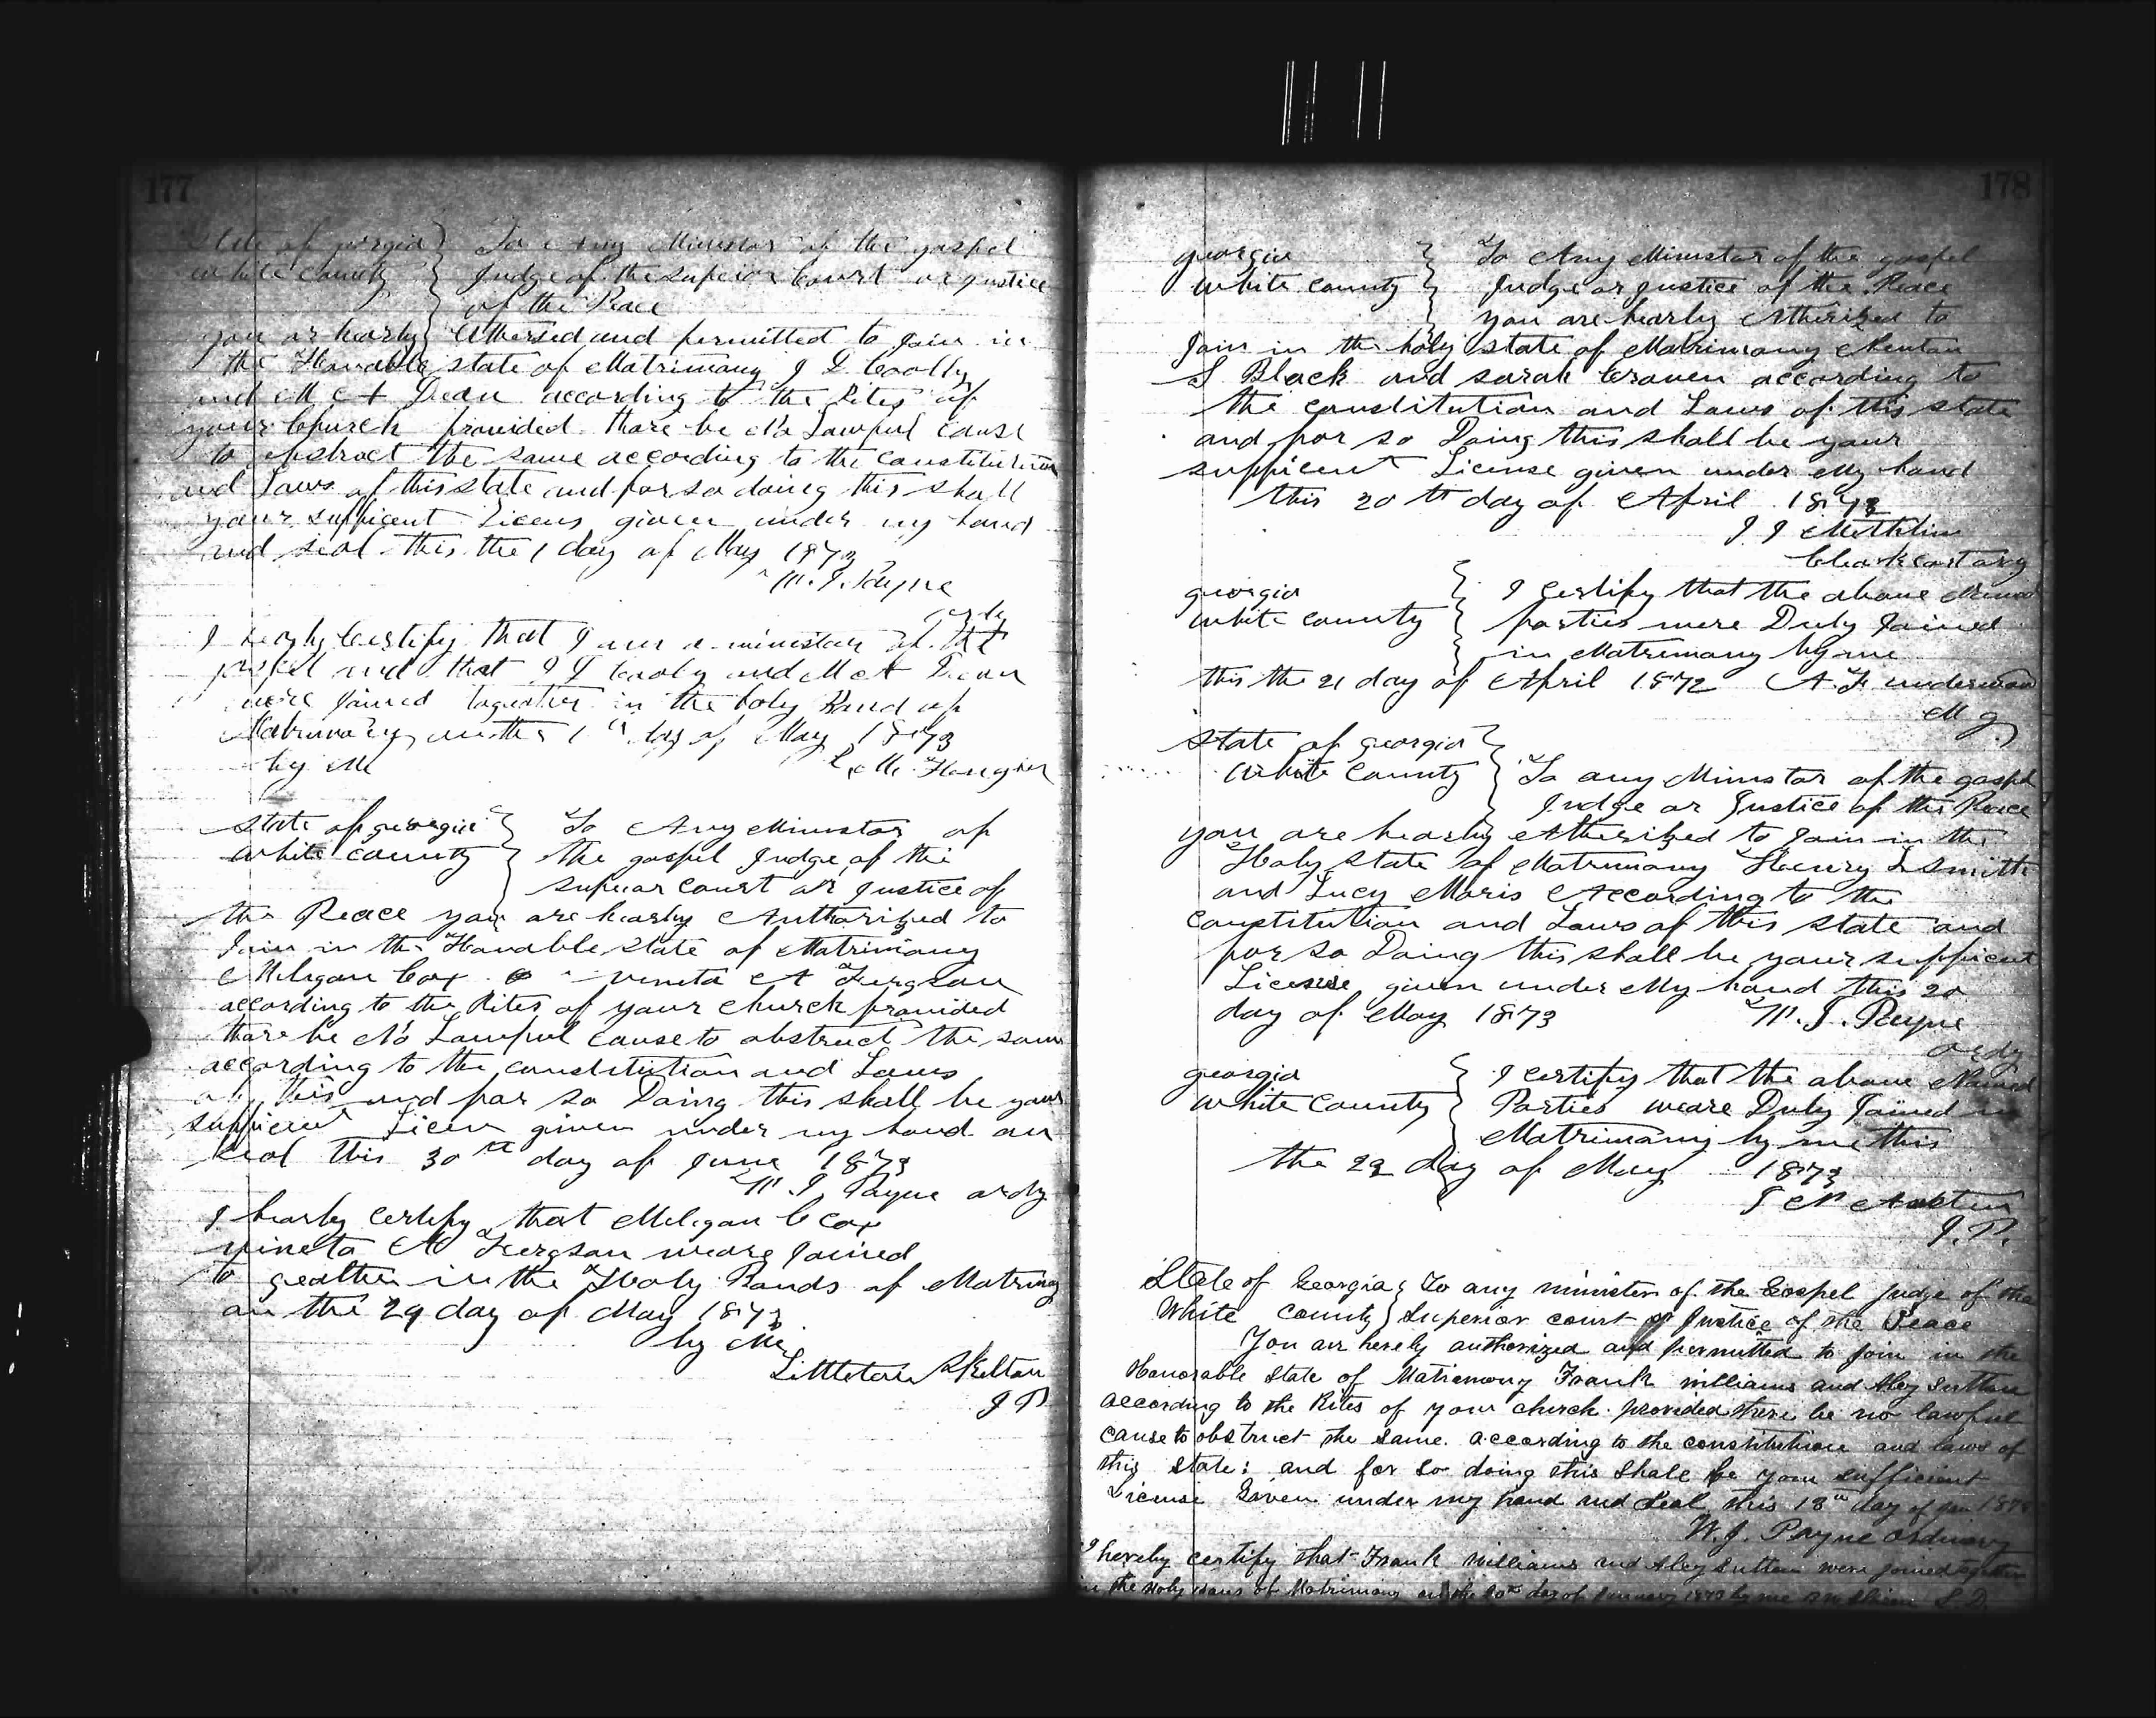 177
State of georgia } To Any Minestor of the gospel
White County } Judge of the Supeior Court or justice
of the Peace
you ar hearby Athorsed and permitted to Join in
the Honable state of Matrimony J L Cooly
and M A Dean according to the Rites of
your Church provided thare be No Lawful cause
to obstract the same according to the constitution
and Laws of this state and for so doing this shall
your sufficent Licens given under my hand
and seal this the 1 day of May 1873
W. J. Payne
ordy
I hearby Certify that I am a minister of the
gospel and that J L Cooly and M A Dean
were joined togeather in the holy Band of
Matrimony on the 1st day of May 1873
by Me
State of georgia } To Any Minestor of
White County } the gospel Judge of the
supuar court or justice of
the Peace you are hearby Authorized to
Join in the Honable state of Matrimony
Miligan Cox vineta A Furgson
according to the Rites of your church provided
thare be No Lawful cause to obstruct the same
according to the constitution and Laws
of this and for so Doing this shall be your
sufficent Licen given under my hand an
seal this 30th day of June 1873
W. J. Payne ordy
I hearby certify that Miligan C cox
vineta A Furgson weare Joined
to geather in the Holy Bands of Matrimy
on the 29 day of May 1873
by Me
Littleton Skelton
J P
178
georgia } To Any Minestor of the gospel
White County } Judge or Justice of the Peace
you are hearby Atherized to
Join in the holy state of Matrimony Newton
S Black and sarah Craven according to
the constitution and Laws of this state
and for so Doing this shall be your
sufficent License given under My hand
this 20th day of April 1873
J J
georgia } I certify that the above Named
White County } parties were Duly Joined
in Matrimony by me
this the 21 day of April 1872 A F underwood
M g
State of georgia }
White County } To any Minestor of the gospel
Judge or Justice of the Peace
you are hearby Atherized to Join in the
Holy State of Matrimony Henry L Smith
and Lucy Maris According to the
constitution and Laws of this state and
for so Doing this shall be your sufficent
License given under My hand this 20
day of May 1873 W. J. Payne
ordy
georgia } I certify that the above Named
White County } Parties weare Duly Joined in
Matrimony by me this
the 22 day of May 1873
J. P.
State of Georgia } To any minister of the Gospel Judge of the
White County } Superior court or Justice of the Peace
You are hereby authorized and permitted to join in the
Honorable State of Matrimony Frank Williams and Aley Sutton
according to the Rites of your church provided there be no lawful
cause to obstruct the same according to the constitution and laws of
this State: and for so doing this Shall be your sufficient
License Given under my hand and Seal this 18th day of Jan 187
W. J. Payne Ordinary
I hereby certify that Frank Williams and Aley Sutton were joined together
in the Holy of Matrimony on the 20th day of January 1873 by me